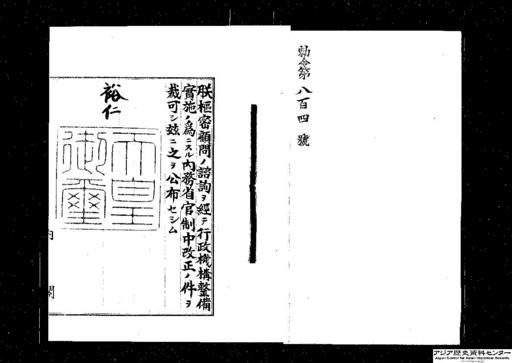 勅令第八百四號
朕樞密顧問ノ諮詢ヲ經テ行政機構整備
實施ノ爲ニスル內務省官制中改正ノ件ヲ
裁可シ玆ニ之ヲ公布セシム
裕仁
天皇
御璽
內閣
アジア歴史資料センター
Japan Center for Asian Historical Records